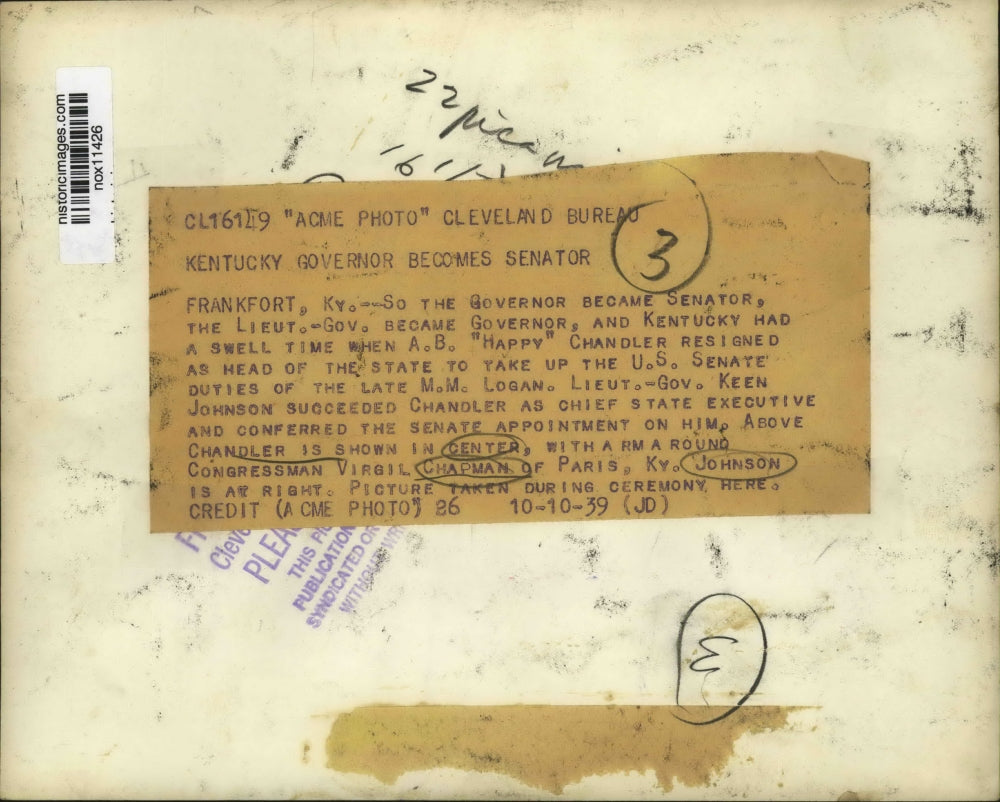 historicimages.com
nox11426
22 pica
16 1/2
CL16149 "ACME PHOTO" CLEVELAND BUREAU
3
KENTUCKY GOVERNOR BECOMES SENATOR
FRANKFORT, KY.--SO THE GOVERNOR BECAME SENATOR,
THE LIEUT.-GOV. BECAME GOVERNOR, AND KENTUCKY HAD
A SWELL TIME WHEN A.B. "HAPPY" CHANDLER RESIGNED
AS HEAD OF THE STATE TO TAKE UP THE U.S. SENATE
DUTIES OF THE LATE M.M. LOGAN. LIEUT.-GOV. KEEN
JOHNSON SUCCEEDED CHANDLER AS CHIEF STATE EXECUTIVE
AND CONFERRED THE SENATE APPOINTMENT ON HIM. ABOVE
CHANDLER IS SHOWN IN CENTER, WITH ARM AROUND
CONGRESSMAN VIRGIL CHAPMAN OF PARIS, KY. JOHNSON
IS AT RIGHT. PICTURE TAKEN DURING CEREMONY HERE.
CREDIT (ACME PHOTO) 26 10-10-39 (JD)
Cleve
PLEA
THIS PIC
PUBLICATION
SYNDICATED OR
WITHOUT WR
3